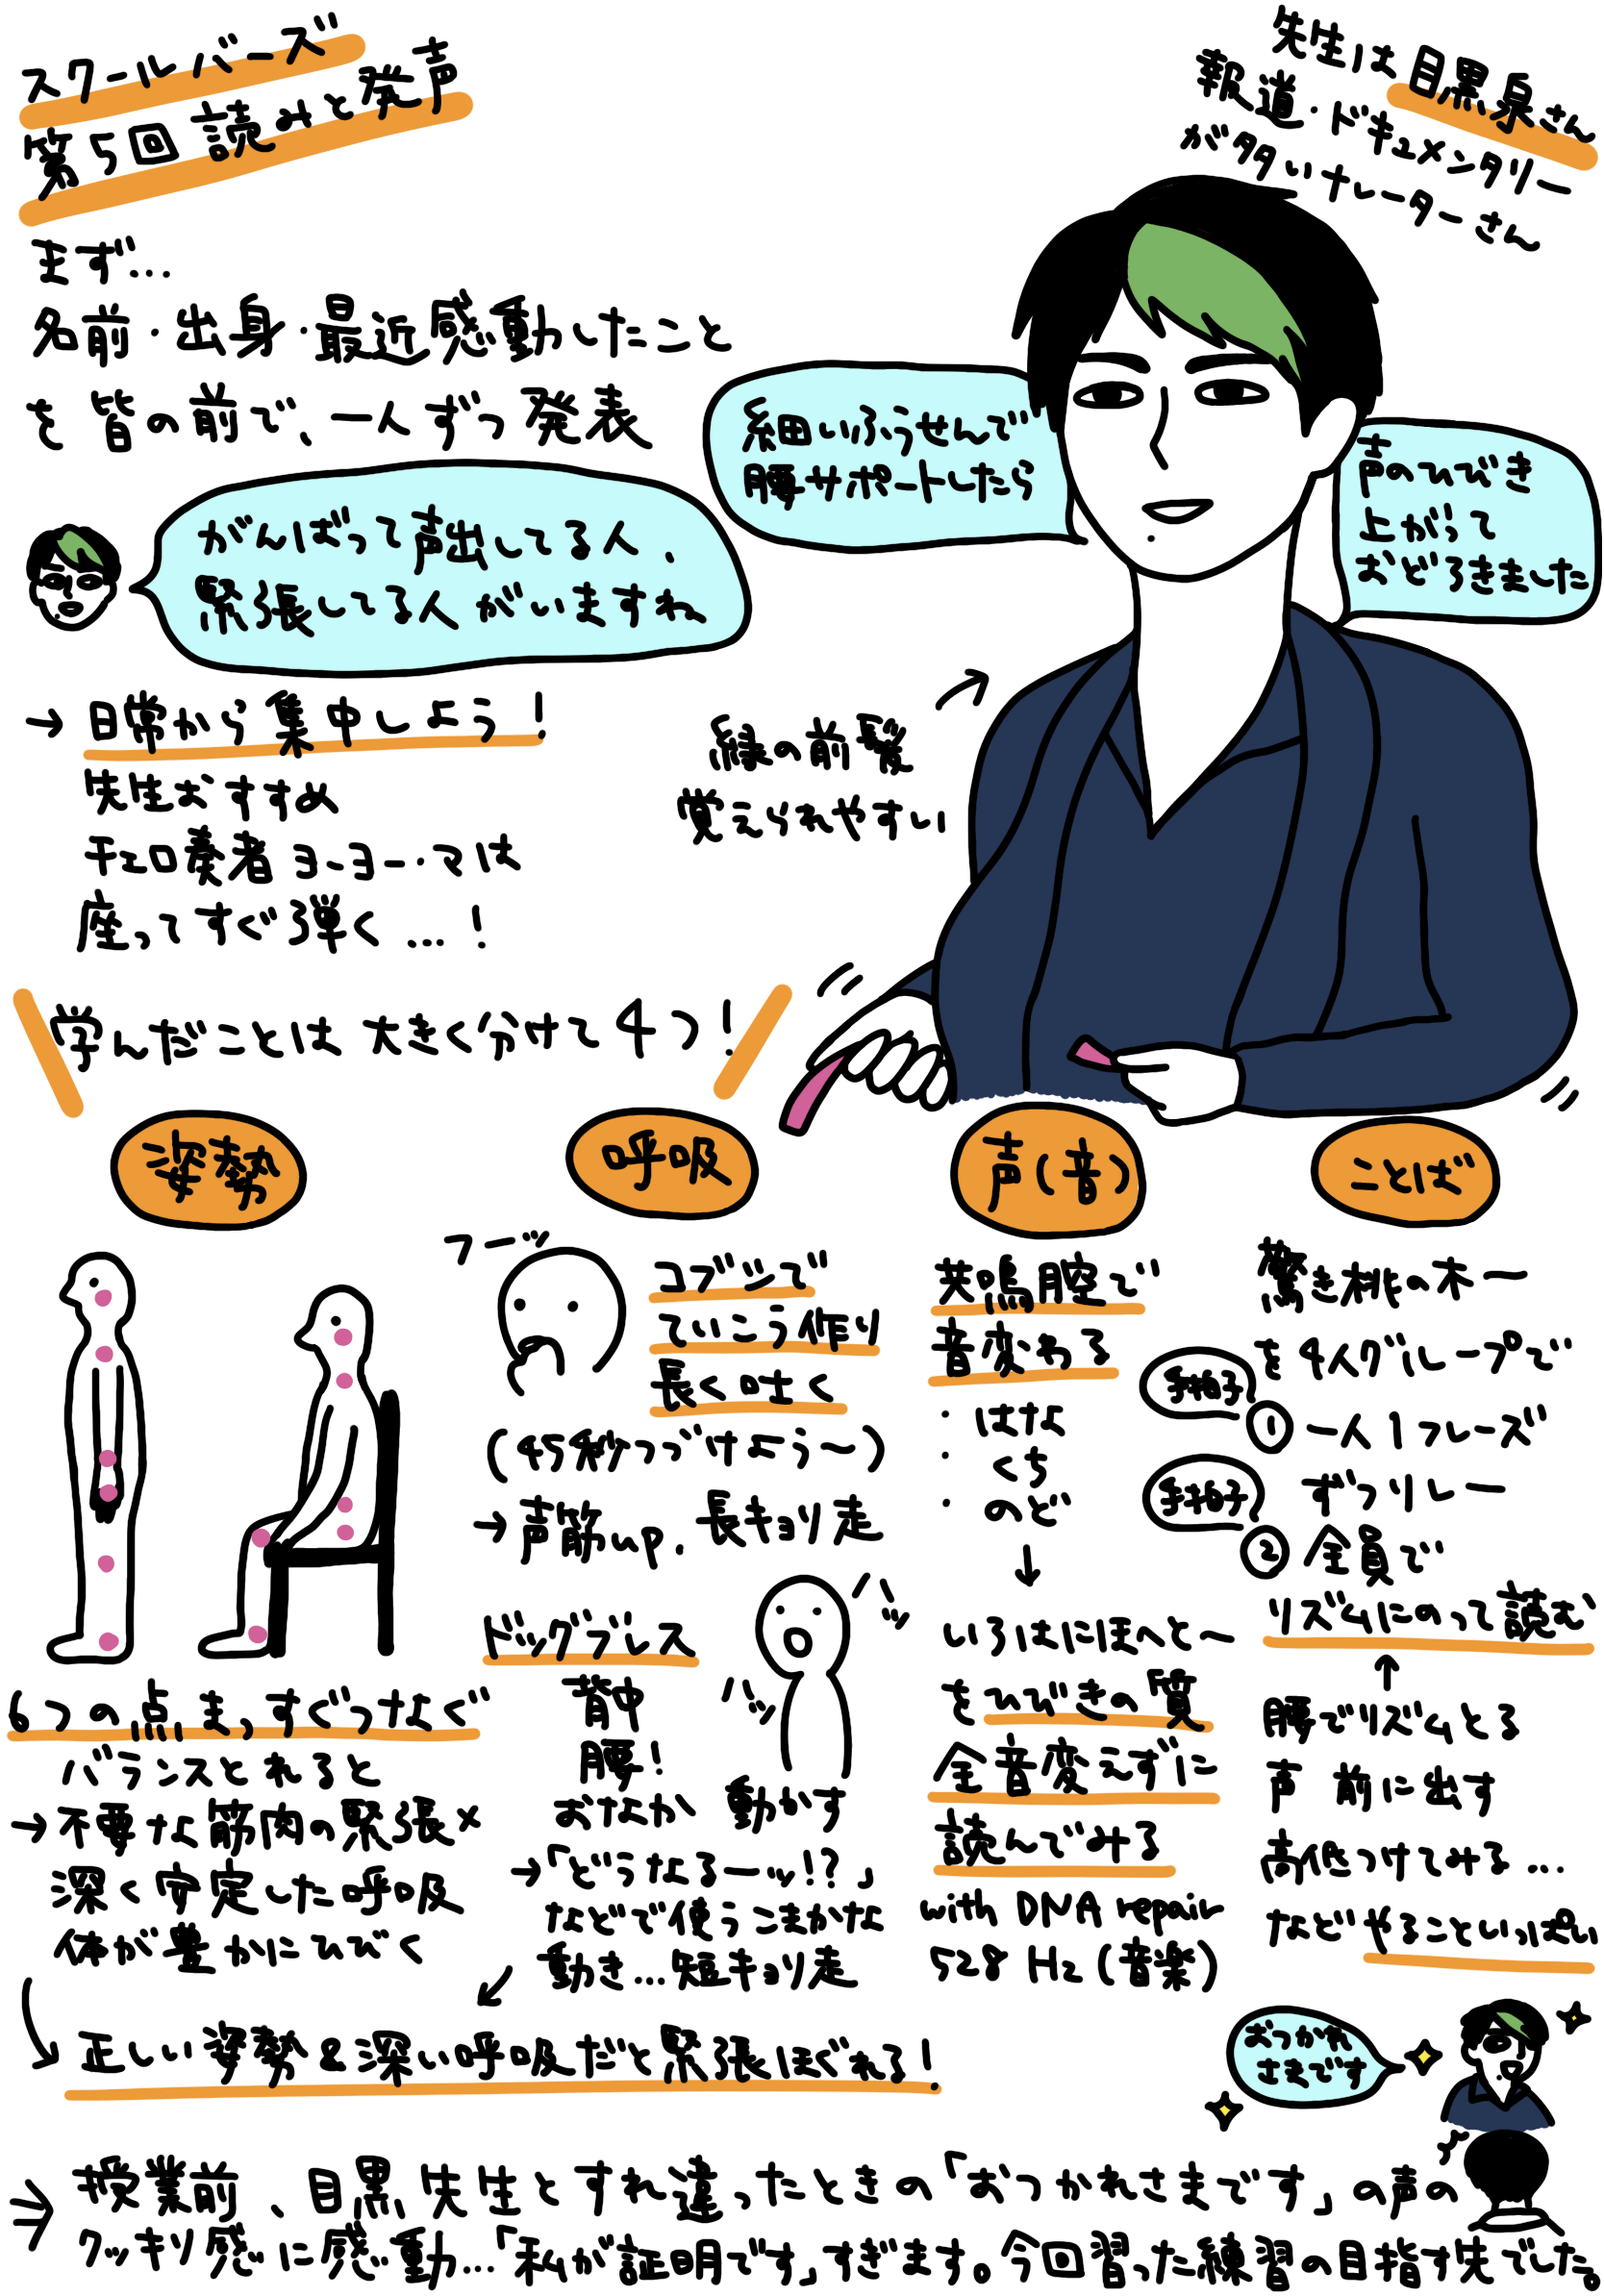 スクールバーズ
第5回 読みと発声
先生は 目黒泉さん
報道・ドキュメンタリー
が多いナレーターさん
まず…
名前・出身・最近感動したこと
を 皆の前で、一人ずつ発表
がんばって声出してる人、
緊張してる人がいますね
細いふうせんで
腰サポートしたら
声のひびき
上がって
おどろきました
→ 日常から集中しよう!
先生おすすめ
チェロ奏者 ヨーヨー・マは
座ってすぐ弾く…!
緑の前髪
覚えられやすい
学んだことは 大きく分けて4つ!
姿勢
6つの点まっすぐつなぐ
バランスとれると
→不要な筋肉の緊張×
深く安定した呼吸
体が豊かにひびく
呼吸
フーッ
コブシで
ていこう作り
長く吐く
(45秒つづけよう〜)
→声筋up、長キョリ走
ドッグブレス
ハッ
ハッ
背中
腰!
おなか 動かす
→「どうなるーッ!?」
などで使うこまかな
動き…短キョリ走
声(音)
共鳴腔で
音変わる
・はな
・くち
・のど
↓
いろはにほへと〜
をひびきの質
全音変えずに
読んでみる
with DNA repair
528 Hz (音楽)
ことば
驚き桃の木ー
を4人グループで
手拍子
① 一人1フレーズ
ずつリレー
手拍子
② 全員で
リズムにのって読む
↑
腰でリズムとる
声 前に出す
高低つけてみる…
などやることいっぱい
正しい姿勢&深い呼吸だと緊張ほぐれる!
おつかれ
さまです
⇒ 授業前、目黒先生とすれ違ったときの「おつかれさまです」の声の
クッキリ感に感動…「私が証明です」すぎます。今回習った練習の目指す先でした。